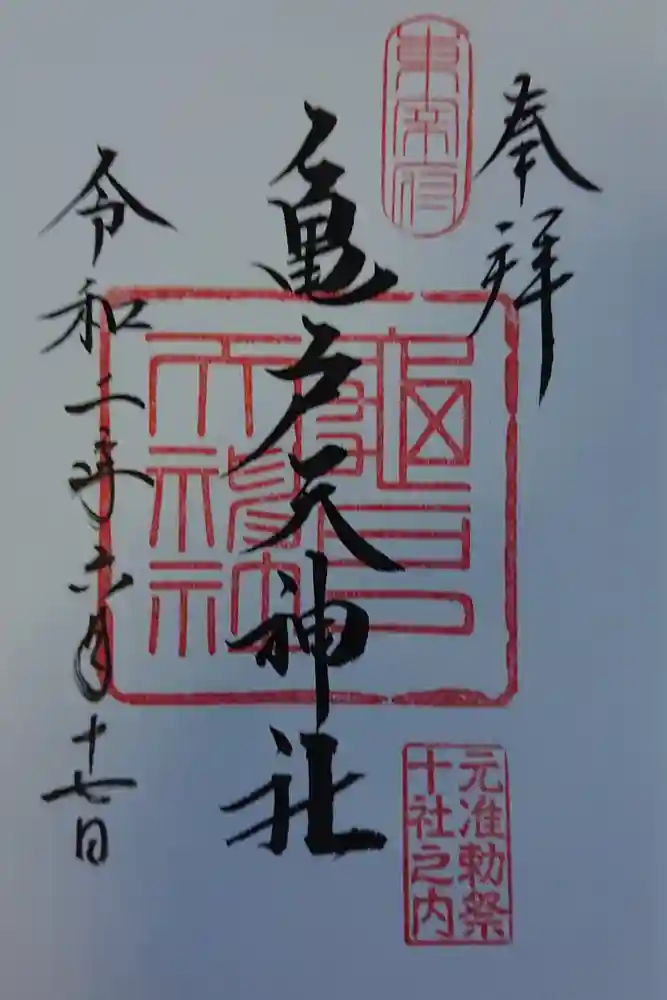 奉拝
東宰府
亀戸天神社
元准勅祭
十社之内
令和二年六月十七日